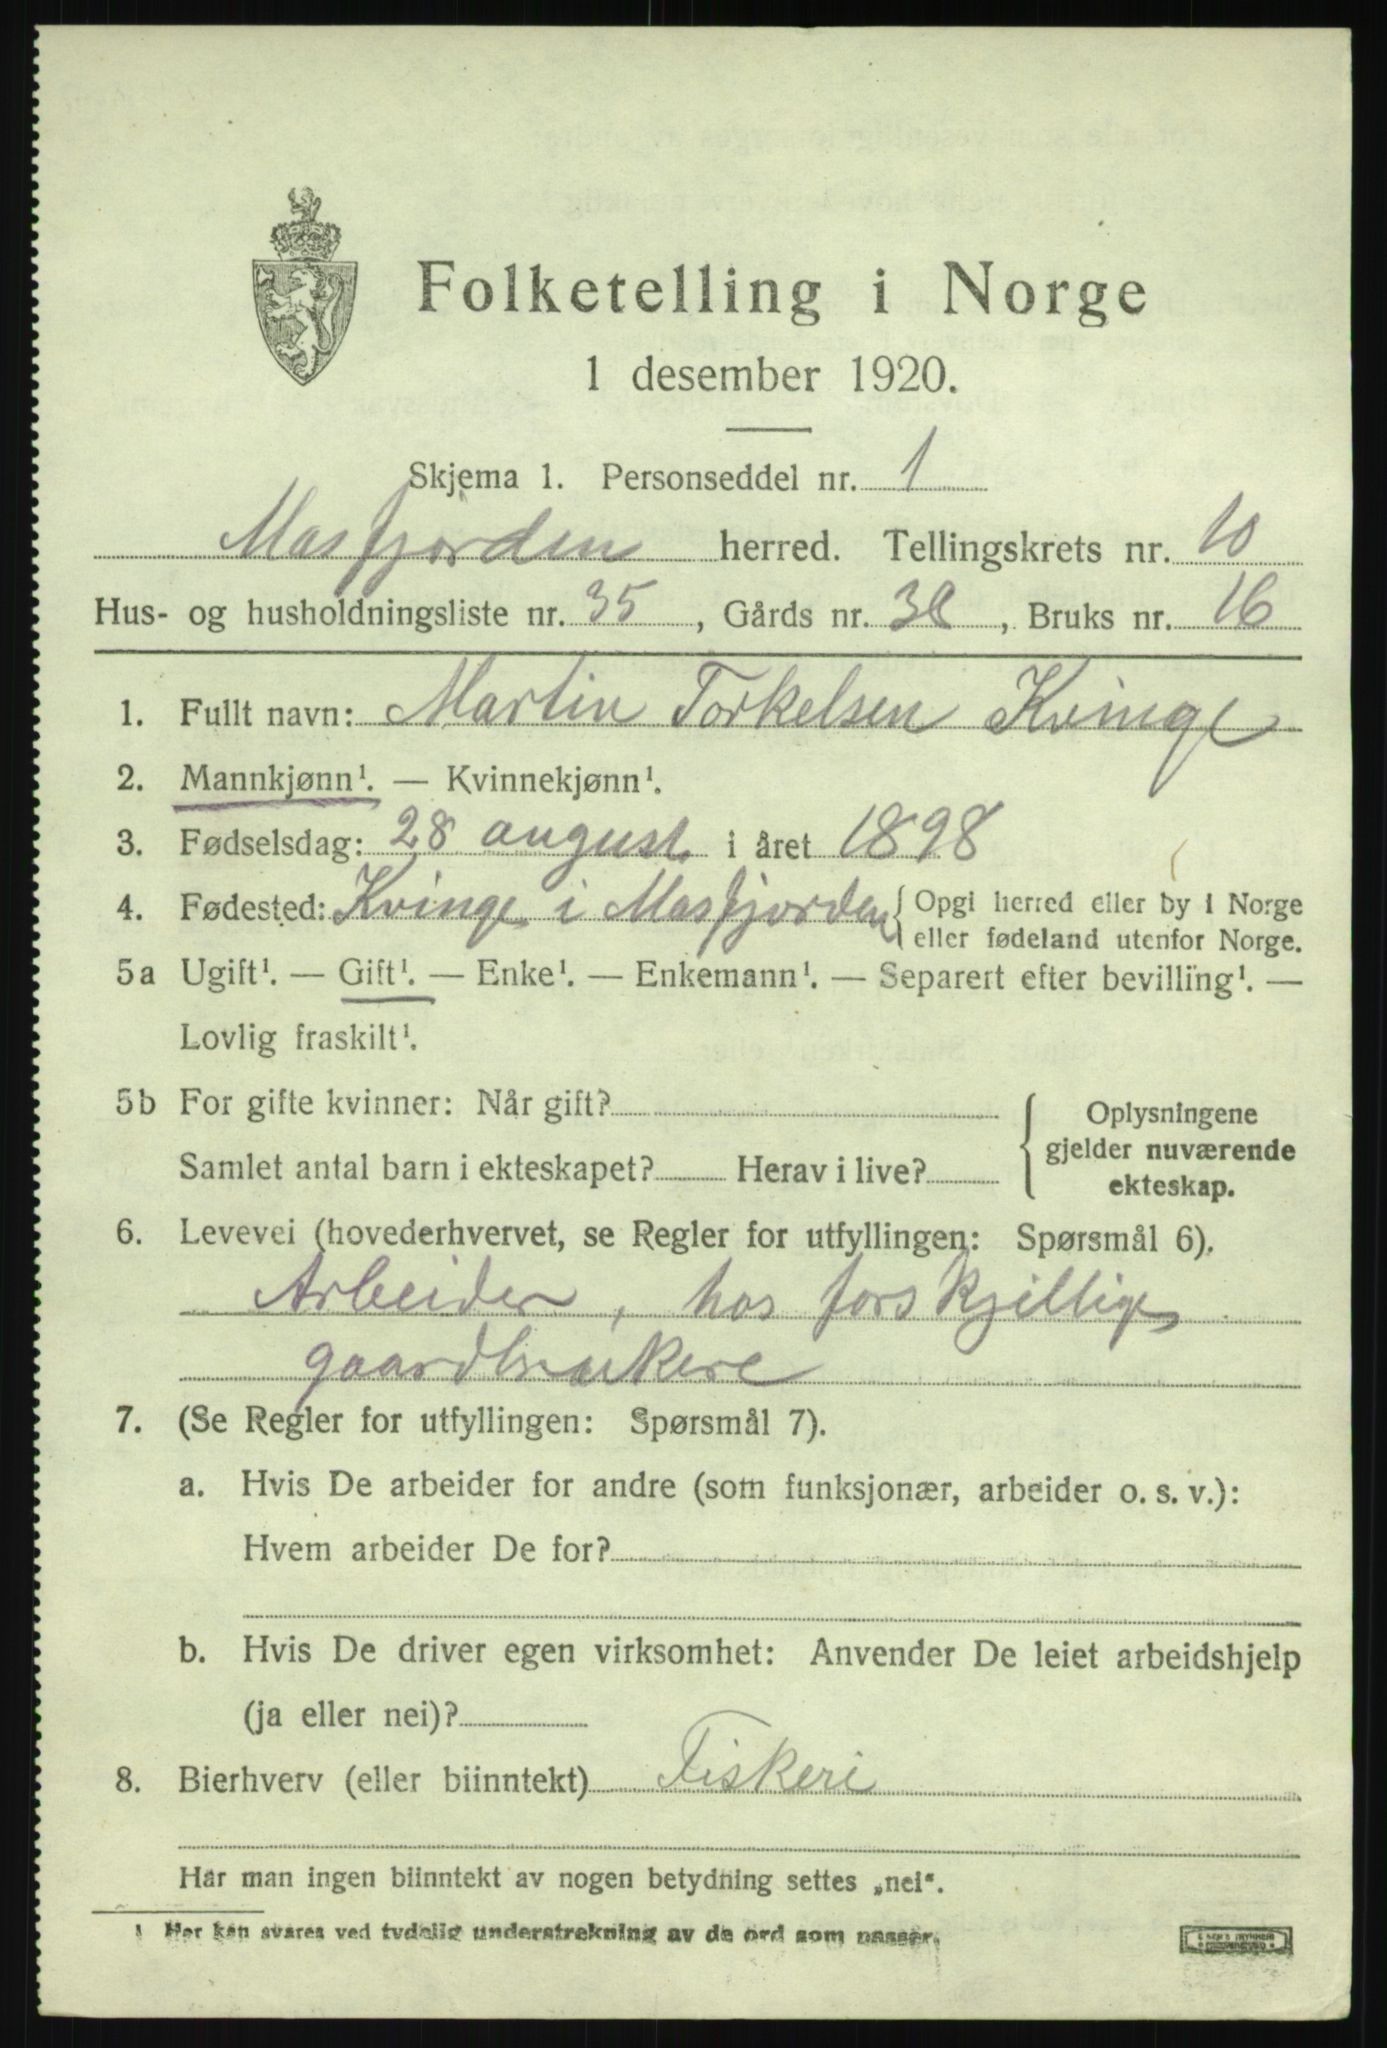 Folketelling i Norge
1 desember 1920.
Skjema 1. Personseddel nr. 1
Masfjorden herred. Tellingskrets nr. 10
Hus- og husholdningsliste nr. 35, Gårds nr. 38, Bruks nr. 16
1. Fullt navn: Martin Torkelsen Kvinge
2. Mannkjønn¹. — Kvinnekjønn¹.
3. Fødselsdag: 28 august i året 1898
4. Fødested: Kvinge i Masfjorden { Opgi herred eller by i Norge
eller fødeland utenfor Norge.
5a Ugift¹. — Gift¹. — Enke¹. — Enkemann¹. — Separert efter bevilling¹. —
Lovlig fraskilt¹.
5b For gifte kvinner: Når gift?
Samlet antal barn i ekteskapet? Herav i live?
Oplysningene
gjelder nuværende
ekteskap.
6. Levevei (hovederhvervet, se Regler for utfyllingen: Spørsmål 6).
Arbeider, hos forskjillige
gaardbrukere
7. (Se Regler for utfyllingen: Spørsmål 7).
a. Hvis De arbeider for andre (som funksjonær, arbeider o. s. v.):
Hvem arbeider De for?
b. Hvis De driver egen virksomhet: Anvender De leiet arbeidshjelp
(ja eller nei)?
8. Bierhverv (eller biinntekt) Fiskeri
Har man ingen biinntekt av nogen betydning settes „nei".
1 Her kan svares ved tydelig understrekning av de ord som passer.